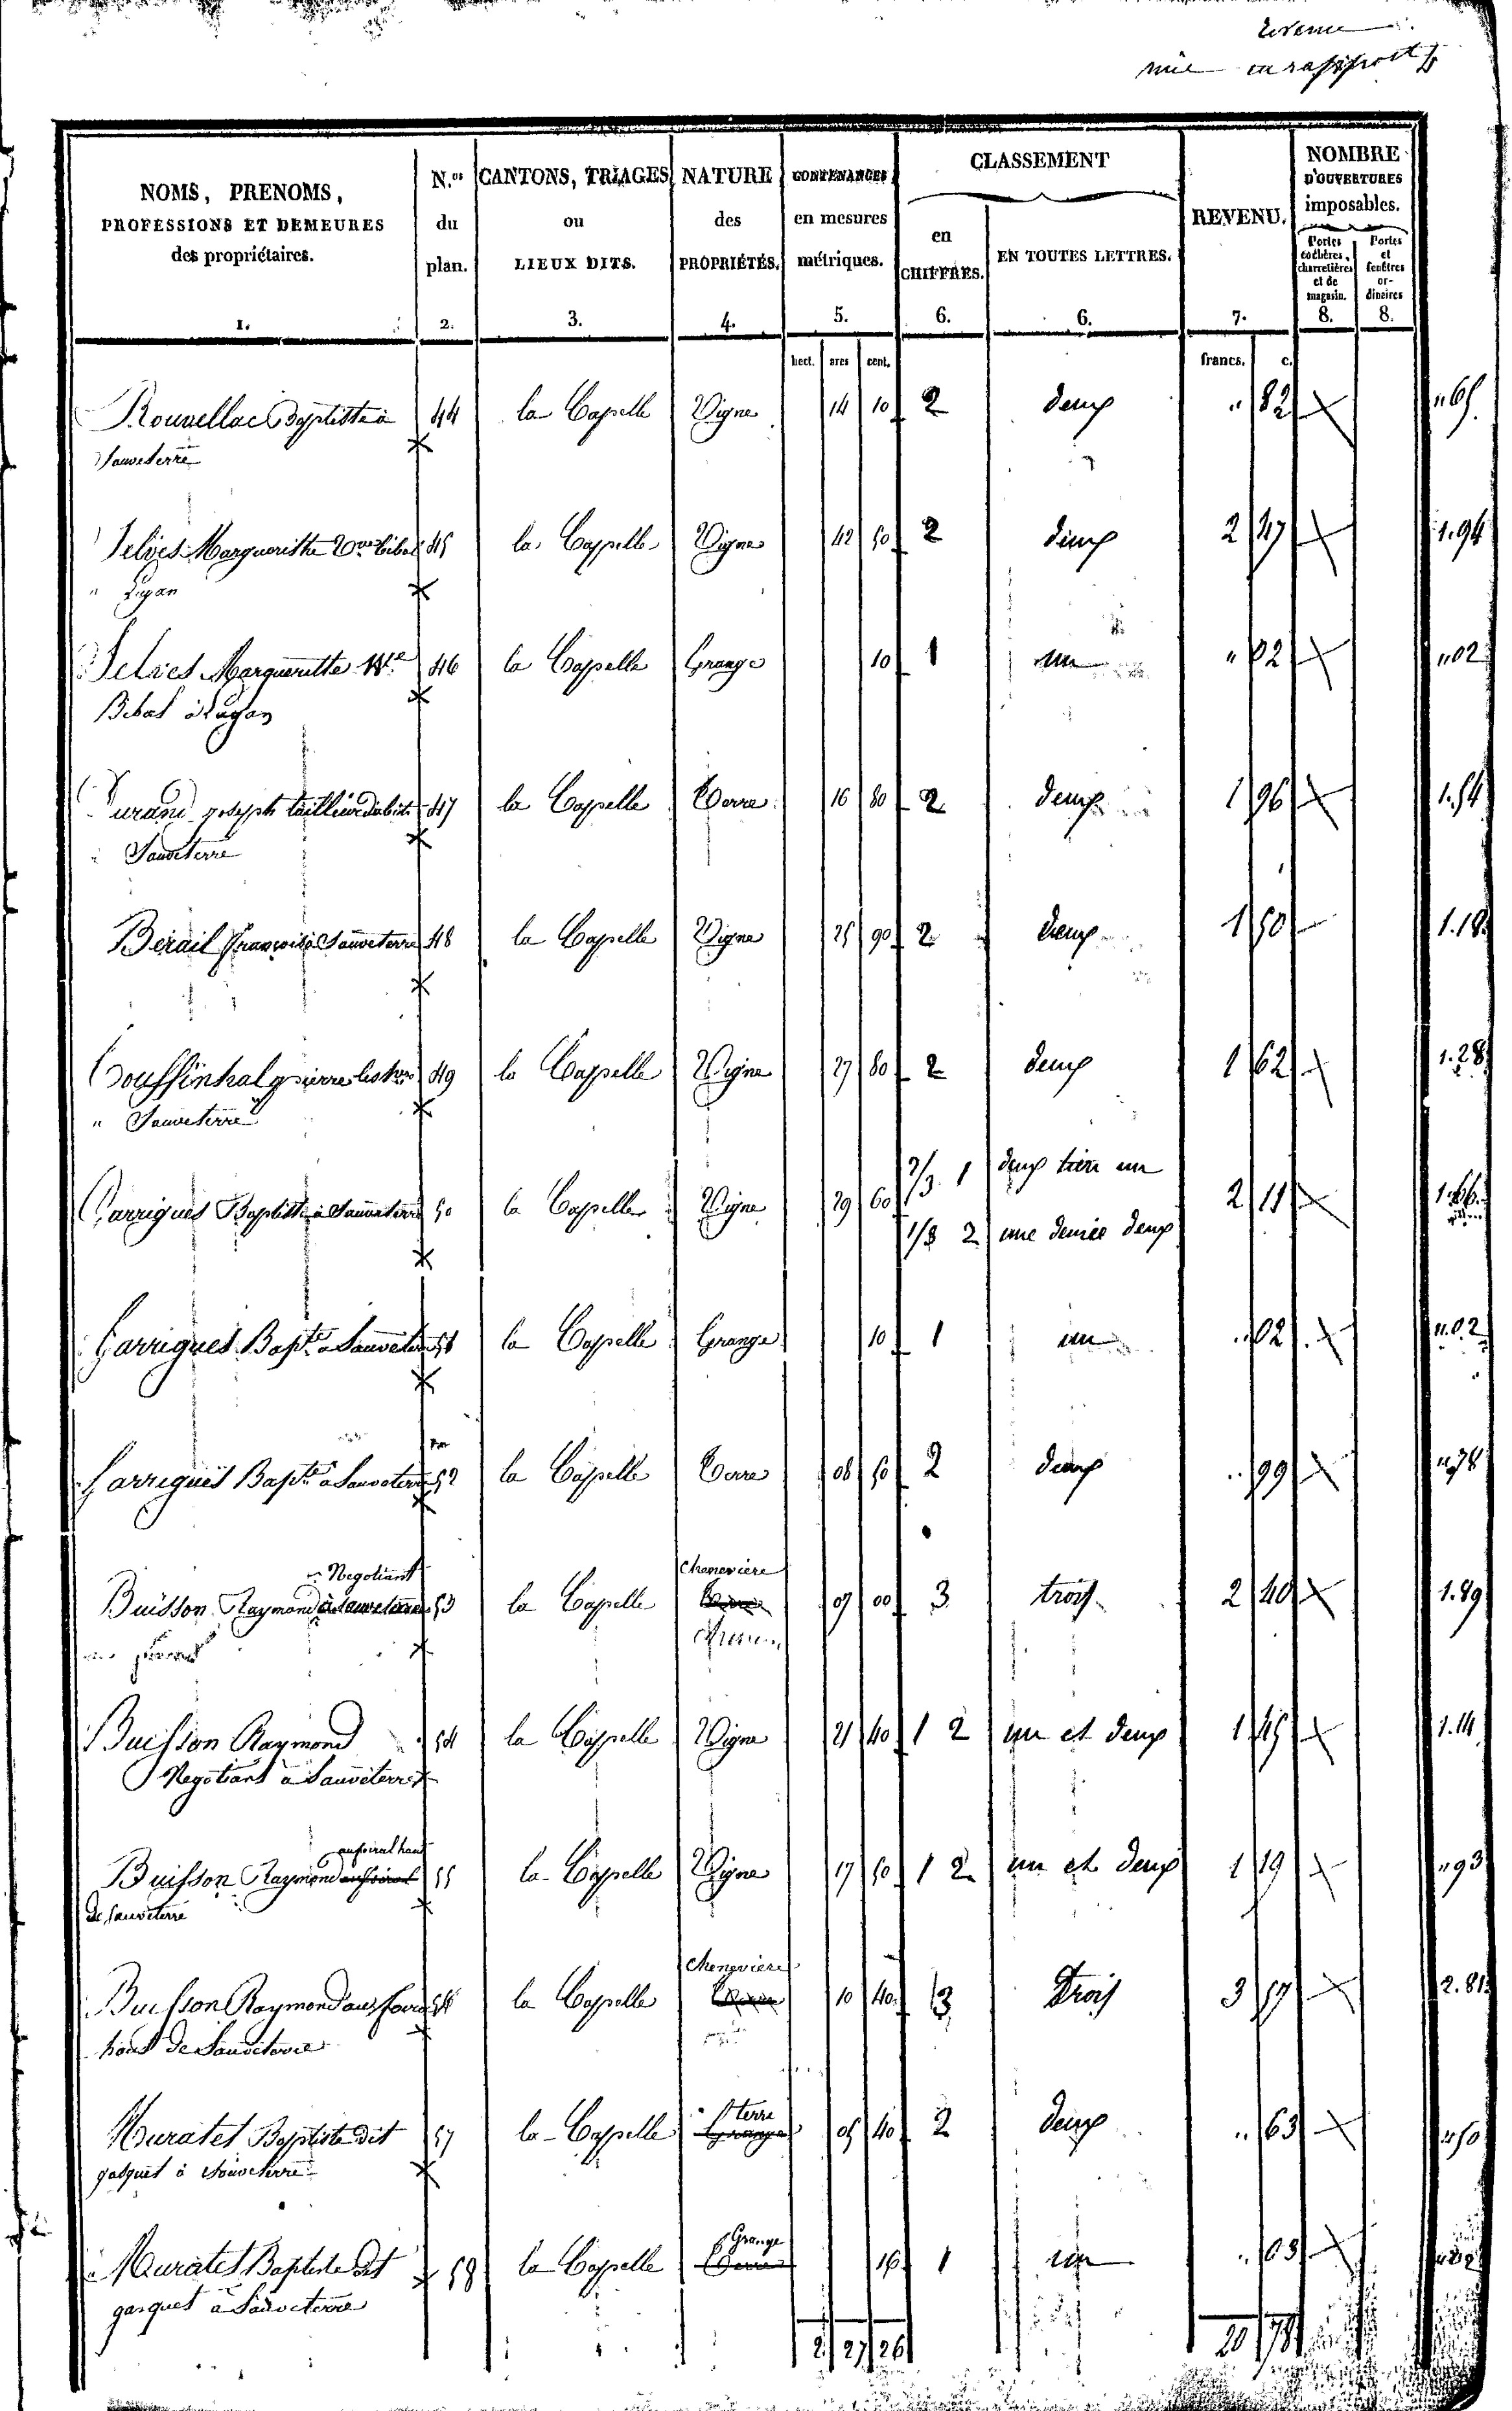 Revenu
mis en rapport
NOMS, PRENOMS, PROFESSIONS ET DEMEURES des propriétaires.
N.os du plan.
CANTONS, TRIAGES ou LIEUX DITS.
NATURE des PROPRIÉTÉS.
CONTENANCES en mesures métriques.
CLASSEMENT
en CHIFFRES.
EN TOUTES LETTRES.
REVENU.
NOMBRE D'OUVERTURES imposables.
Portes cochères, charretières et de magasin.
Portes et fenêtres ordinaires
1. 2. 3. 4. 5. 6. 6. 7. 8. 8.
hect. ares cent. francs. c.
Rouvellac Baptiste à 44 la Capelle Vigne 14 10 2 deux " 82 " 65
Sauveterre
Selves Marguerithe 45 la Capelle Vigne 42 50 2 deux 2 47 1.94
" Lugan
Selves Margueritte 46 la Capelle Grange 10 1 un " 02 " 02
Bibal à Lugan
Durand joseph tailleur d'abits 47 la Capelle Terre 16 80 2 deux 1 96 1.54
à Sauveterre
Berail François à Sauveterre 48 la Capelle Vigne 25 90 2 deux 1 50 1.18
Bouffinhal pierre 49 la Capelle Vigne 27 80 2 deux 1 62 1.28
" Sauveterre
Garrigues Baptiste à Sauveterre 50 la Capelle Vigne 29 60 2/3 1 deux tiers un 2 11 1.66
1/3 2 une deux
Garrigues Bapte à Sauveterre 51 la Capelle Grange 10 1 un " 02 " 02
Garrigues Bapte à Sauveterre 52 la Capelle Terre 08 50 2 deux " 99 " 78
Negotiant Chenevière
Buisson Raymond à Sauveterre 53 la Capelle 07 00 3 trois 2 40 1.89
Buisson Raymond 54 la Capelle Vigne 21 40 1 2 un et deux 1 45 1.14
Negotiant à Sauveterre
au foiral haut
Buisson Raymond au foiral 55 la Capelle Vigne 17 50 1 2 un et deux 1 19 " 93
de Sauveterre
Chenevière
Buisson Raymond au foiral 56 la Capelle 10 40 3 Trois 3 57 2.81
haut de Sauveterre
terre
Muratet Baptiste dit 57 la Capelle Grange 05 40 2 deux " 63 " 50
gasquet à Sauveterre
Grange
Muratet Baptiste dit 58 la Capelle Terre 16 1 un " 03
gasquet à Sauveterre
2 27 26 20 78